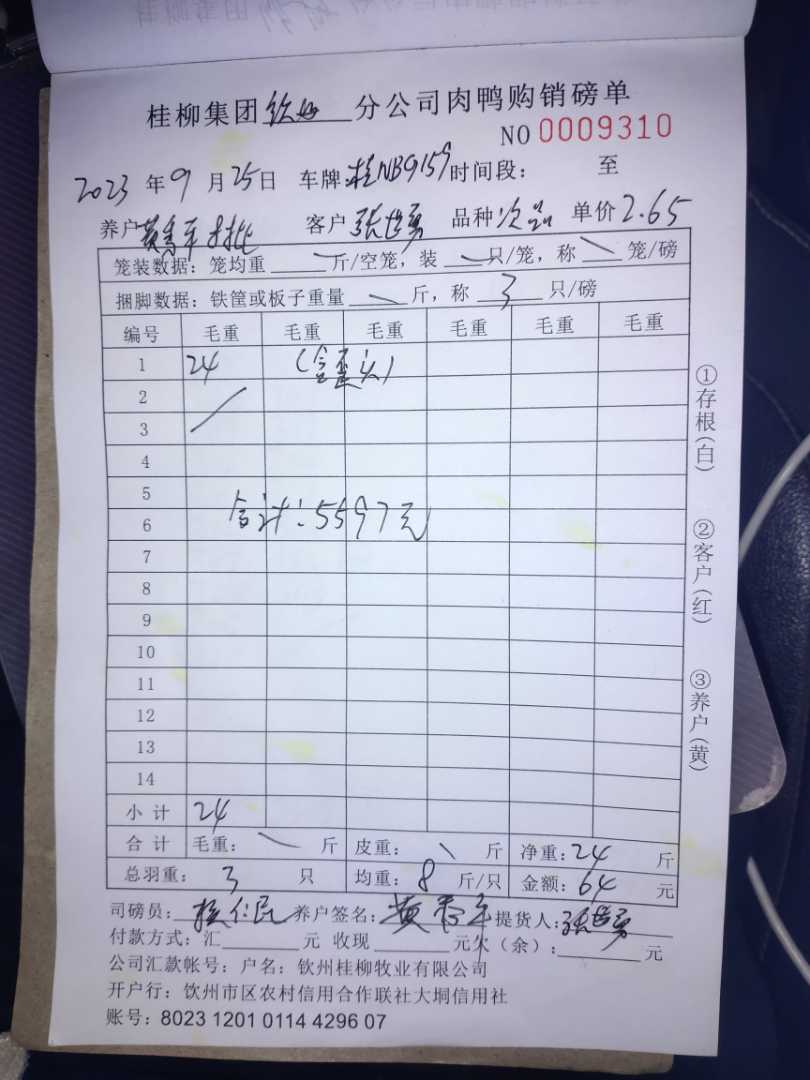 桂柳集团钦州分公司肉鸭购销磅单
NO 0009310
2023年9月25日 车牌:桂NB9159 时间段: 至
养户 黄春平 客户 张世勇 品种 次品 单价 2.65
笼装数据:笼均重 斤/空笼,装 只/笼,称 笼/磅
捆脚数据:铁筐或板子重量 斤,称 3 只/磅
编号 毛重 毛重 毛重 毛重 毛重 毛重
1 24 (含歪头)
2
3
4
5
合计:5597元
6
7
8
9
10
11
12
13
14
小计 24
合计 毛重: 斤 皮重: 斤 净重:24 斤
总羽重: 3 只 均重: 8 斤/只 金额:64 元
司磅员: 仁民 养户签名:黄春平 提货人:张世勇
付款方式:汇 元 收现 元欠(余): 元
公司汇款帐号:户名:钦州桂柳牧业有限公司
开户行:钦州市区农村信用合作联社大垌信用社
账号:8023 1201 0114 4296 07
①存根(白)
②客户(红)
③养户(黄)